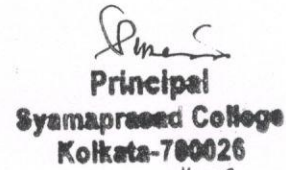 Principal
Syamaprasad College
Kolkata-700026